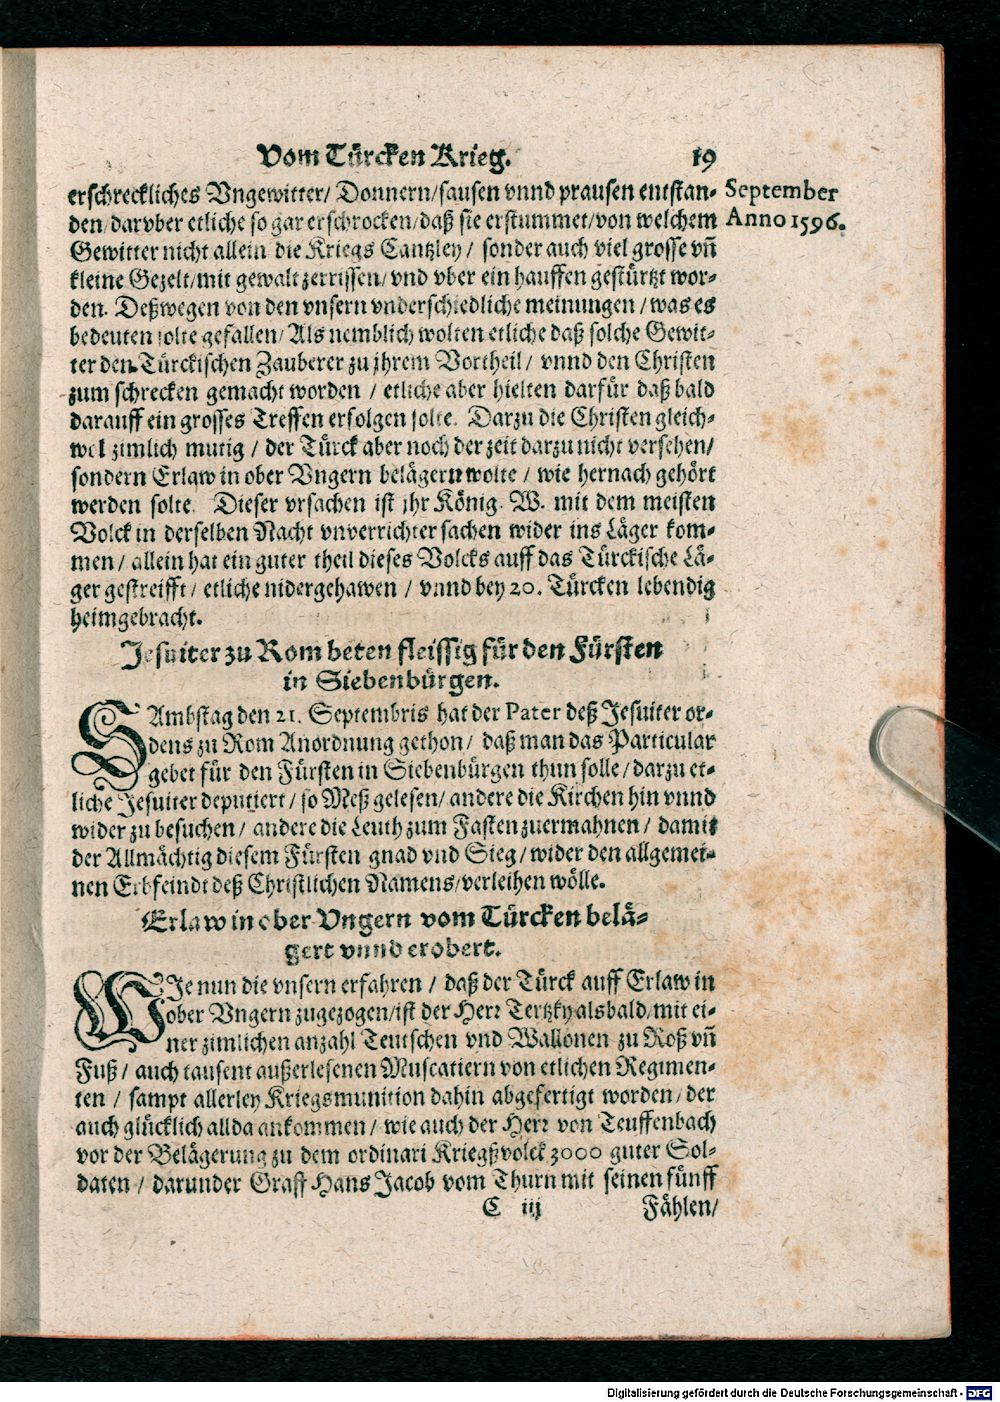 Vom Türcken Krieg. 19
erschreckliches Vngewitter/ Donnern/sausen vnnd prausen entstan-
September
Anno 1596.
den/darvber etliche so gar erschrocken/daß sie erstummet/von welchem
Gewitter nicht allein die Kriegs Cantzley/ sonder auch viel grosse vñ
kleine Gezelt/mit gewalt zerrissen/vnd vber ein hauffen gestürtzt wor-
den. Deßwegen von den vnsern vnderschiedliche meinungen/was es
bedeuten solte gefallen/Als nemblich wolten etliche daß solche Gewit-
ter den Türckischen Zauberer zu jhrem Vortheil/ vnnd den Christen
zum schrecken gemacht worden / etliche aber hielten darfür daß bald
darauff ein grosses Treffen erfolgen solte. Darzu die Christen gleich-
wol zimlich mutig / der Türck aber noch der zeit darzu nicht versehen/
sondern Erlaw in ober Vngern belägern wolte / wie hernach gehört
werden solte. Dieser vrsachen ist jhr König. W. mit dem meisten
Volck in derselben Nacht vnverrichter sachen wider ins Läger kom-
men / allein hat ein guter theil dieses Volcks auff das Türckische Lä-
ger gestreifft/ etliche nidergehawen / vnnd bey 20. Türcken lebendig
heimgebracht.
Jesuiter zu Rom beten fleissig für den Fürsten
in Siebenbürgen.
SAmbstag den 21. Septembris hat der Pater deß Jesuiter or-
dens zu Rom Anordnung gethon/ daß man das Particular
gebet für den Fürsten in Siebenbürgen thun solle/darzu et-
liche Jesuiter deputiert/so Meß gelesen/andere die Kirchen hin vnnd
wider zu besuchen/ andere die Leuth zum Fasten zuermahnen/ damit
der Allmächtig diesem Fürsten gnad vnd Sieg/wider den allgemei-
nen Erbfeindt deß Christlichen Namens/verleihen wölle.
Erlaw in ober Vngern vom Türcken belä-
gert vnnd erobert.
WJe nun die vnsern erfahren / daß der Türck auff Erlaw in
ober Vngern zugezogen/ist der Herr Tertzky alsbald/mit ei-
ner zimlichen anzahl Teutschen vnd Wallonen zu Roß vñ
Fuß/ auch tausent außerlesenen Muscatiern von etlichen Regimen-
ten / sampt allerley Kriegsmunition dahin abgefertigt worden/der
auch glücklich allda ankommen/ wie auch der Herr von Teuffenbach
vor der Belägerung zu dem ordinari Kriegßvolck 3000 guter Sol-
daten / darunder Graff Hans Jacob vom Thurn mit seinen fünff
C iij Fählen/
Digitalisierung gefördert durch die Deutsche Forschungsgemeinschaft - DFG